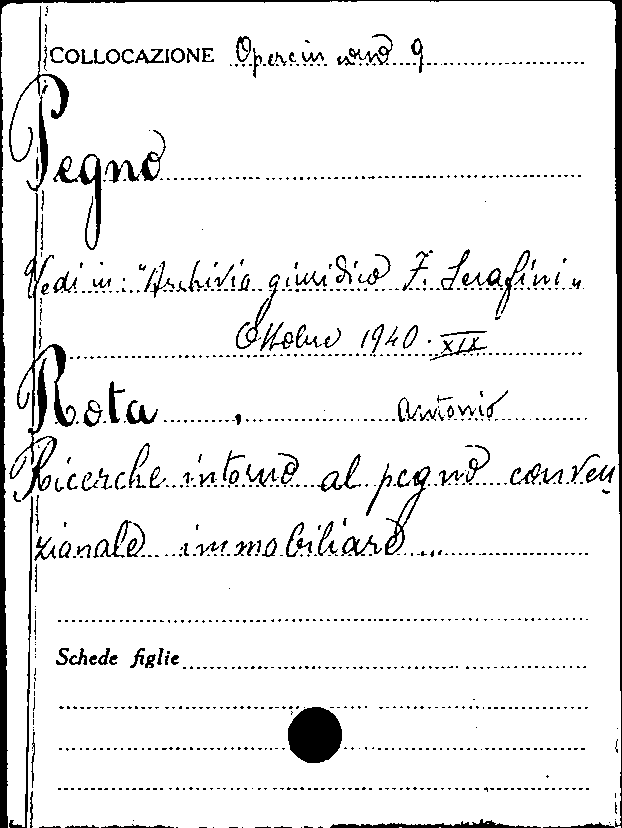 COLLOCAZIONE Opere in corso 9
Pegno
Vedi in: "Archivio giuridico F. Serafini„
Ottobre 1940. XIX
Rota, Antonio
Ricerche intorno al pegno conven
zionale immobiliare ...
Schede figlie